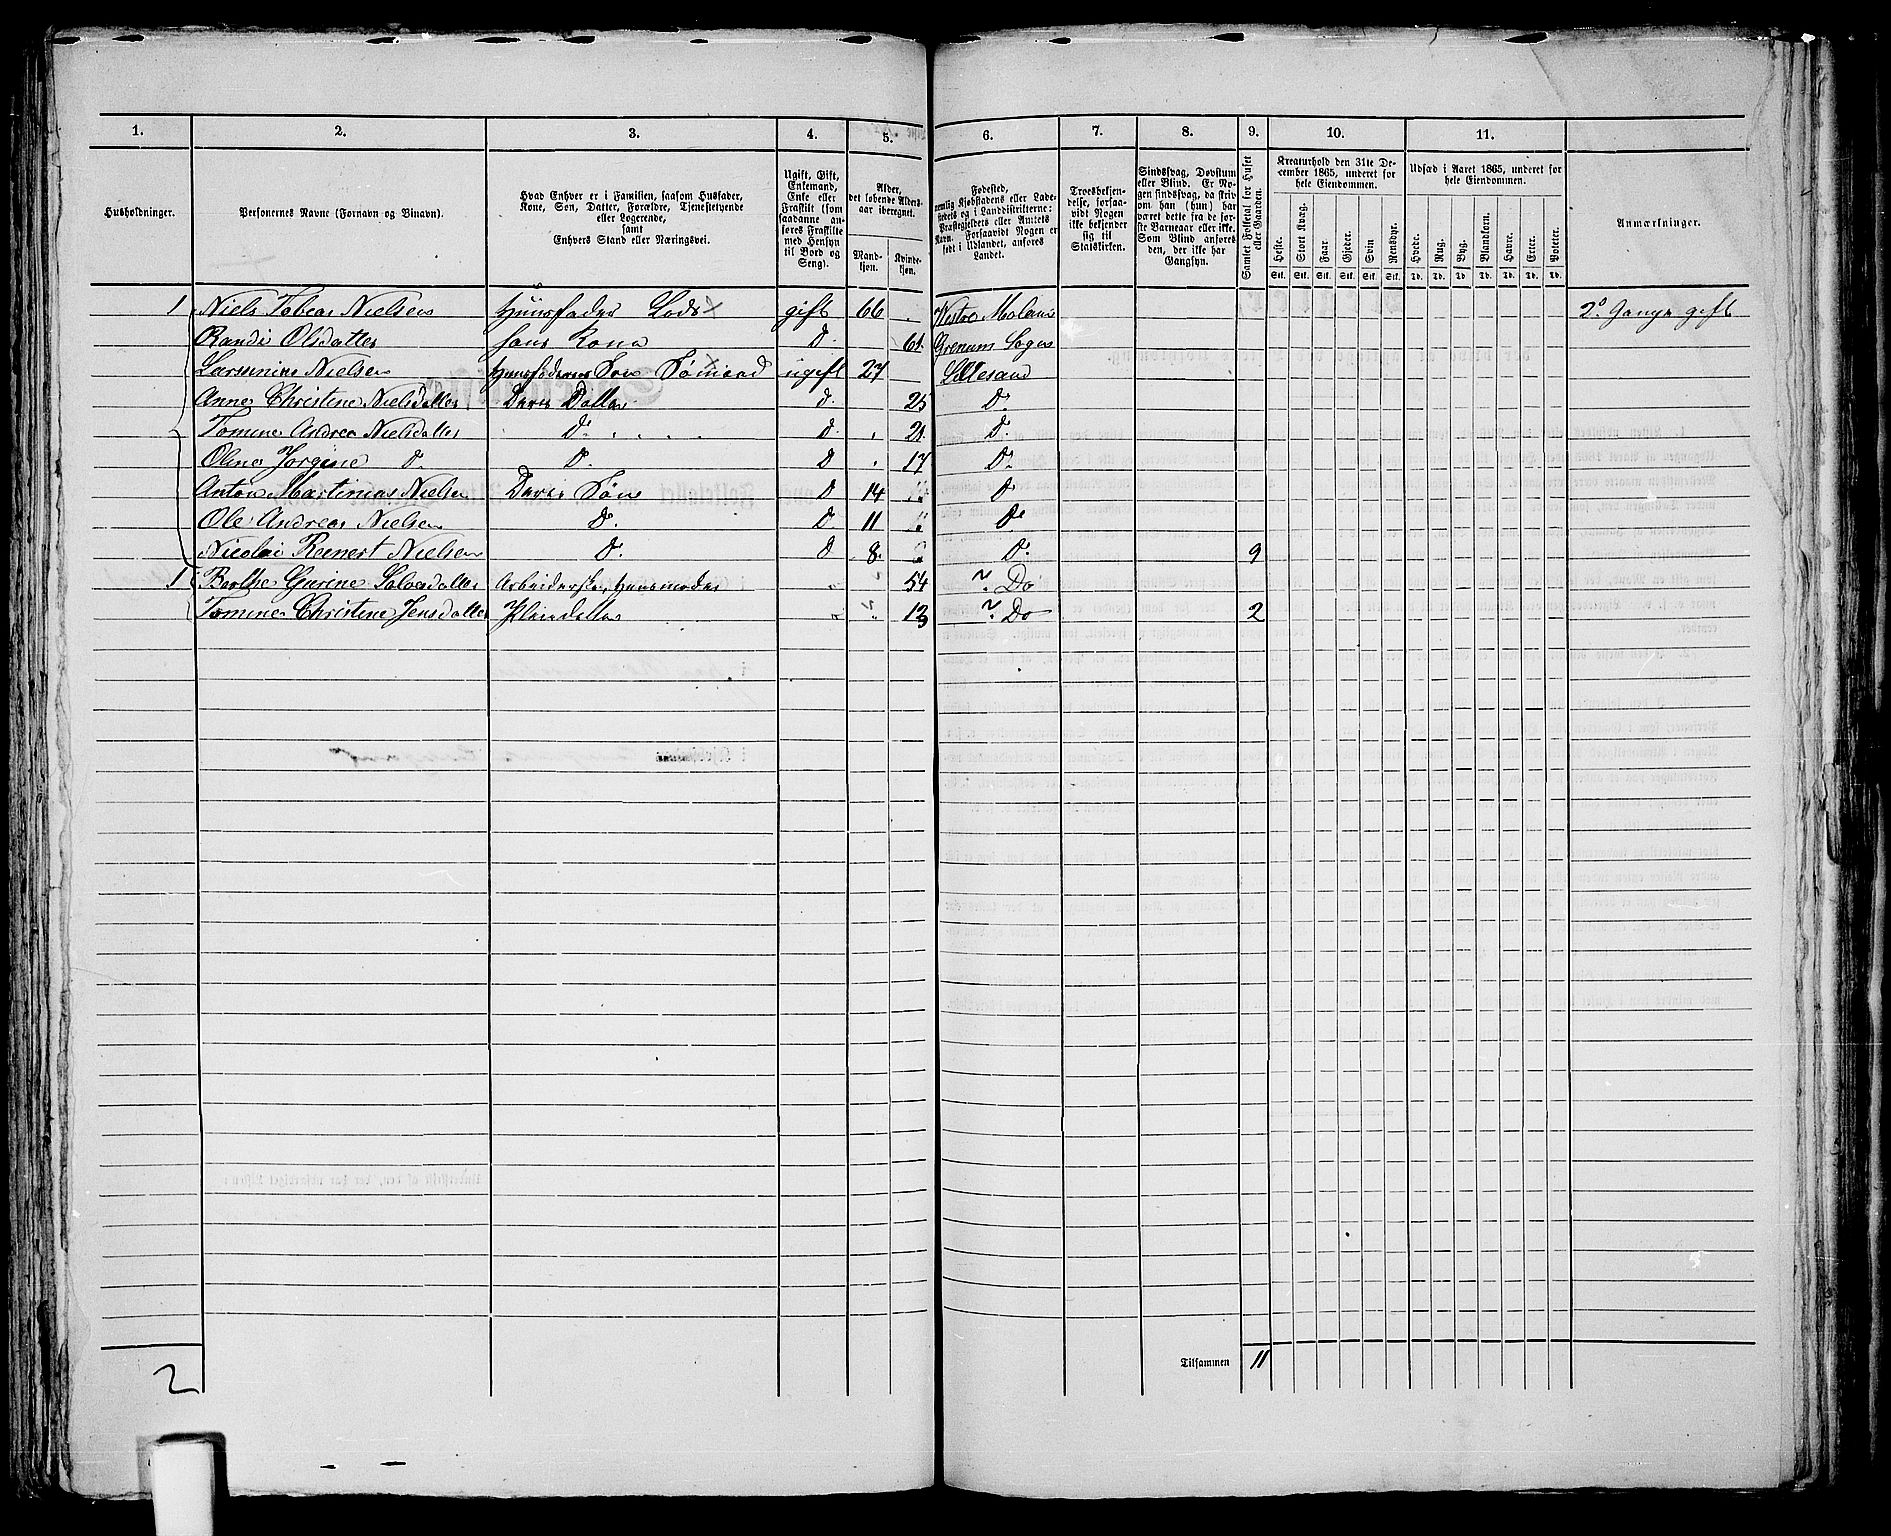 1. 2. 3. 4. 5. 6. 7. 8. 9. 10. 11.
Husholdninger.
Personernes Navne (Fornavn og Binavn).
Hvad Enhver er i Familien, saasom Husfader, Kone, Søn, Datter, Forældre, Tjenestetyende eller Logerende, samt Enhvers Stand eller Næringsvei.
Ugift, Gift, Enkemand, Enke eller Fraskilt (som saadanne anføres Fraskilte med Hensyn til Bord og Seng).
Alder, det løbende Aldersaar iberegnet.
Mandkjøn. Kvindekjøn.
Fødested, nemlig Kjøbstadens eller Ladestedets og i Landdistrikterne: Præstegjeldets eller Amtets Navn. Forsaavidt Nogen er født i Udlandet, anføres Landet.
Troesbekjendelse, forsaavidt Nogen ikke bekjender sig til Statskirken.
Sindssvag, Døvstum eller Blind. Er Nogen sindssvag, da skrives om han (hun) har været dette fra de første Barneaar eller ikke. Som Blind anføres den, der ikke har Gangsyn.
Samlet Folketal for Huset eller Gaarden.
Kreaturhold den 31te December 1865, underet for hele Eiendommen.
Heste. Stort Kvæg. Faar. Gjeder. Svin Rensdyr.
Stk. Stk. Stk. Stk. Stk. Stk.
Udsæd i Aaret 1865, underet for hele Eiendommen.
Hvede. Rug. Byg. Blandkorn. Havre. Erter. Poteter.
Td. Td. Td. Td. Td. Td. Td.
Anmærkninger.
1 Niels Tobias Nielsen Huusfader Lods gift 66 Vestre Molans 2º Gange gift
Randi Olsdatter hans Kone D. 61. Grenum Sogn
Larsmine Nielsen Huusfaderens Søn Sømand ugift 27 Lillesand
Anne Christine Nielsdatter Deres Datter D. 25 D.
Tomine Andrea Nielsdatter D. D. 21. D.
Oline Jorgine D. D. D 17 D.
Anton Martinius Nielsen Deres Søn D 14 D
Ole Andreas Nielsen D. D 11 D
Nicolai Reenert Nielsen D. D 8. D. 9
1 Barthe Gurine Salvesdatter Arbeiderske, Huusmoder 54 Do
Tomine Christine Jensdatter Pleiedatter 13 Do 2
Tilsammen 11
2